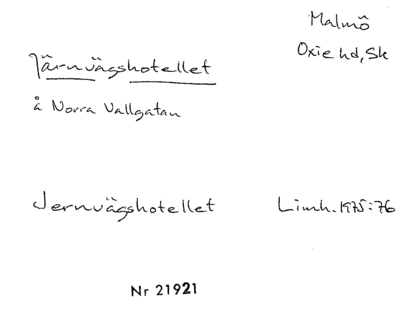 Malmö
Oxie hd, Sk
Järnvägshotellet
å Norra Vallgatan
Jernvägshotellet Limh. 1975:76
Nr 21921